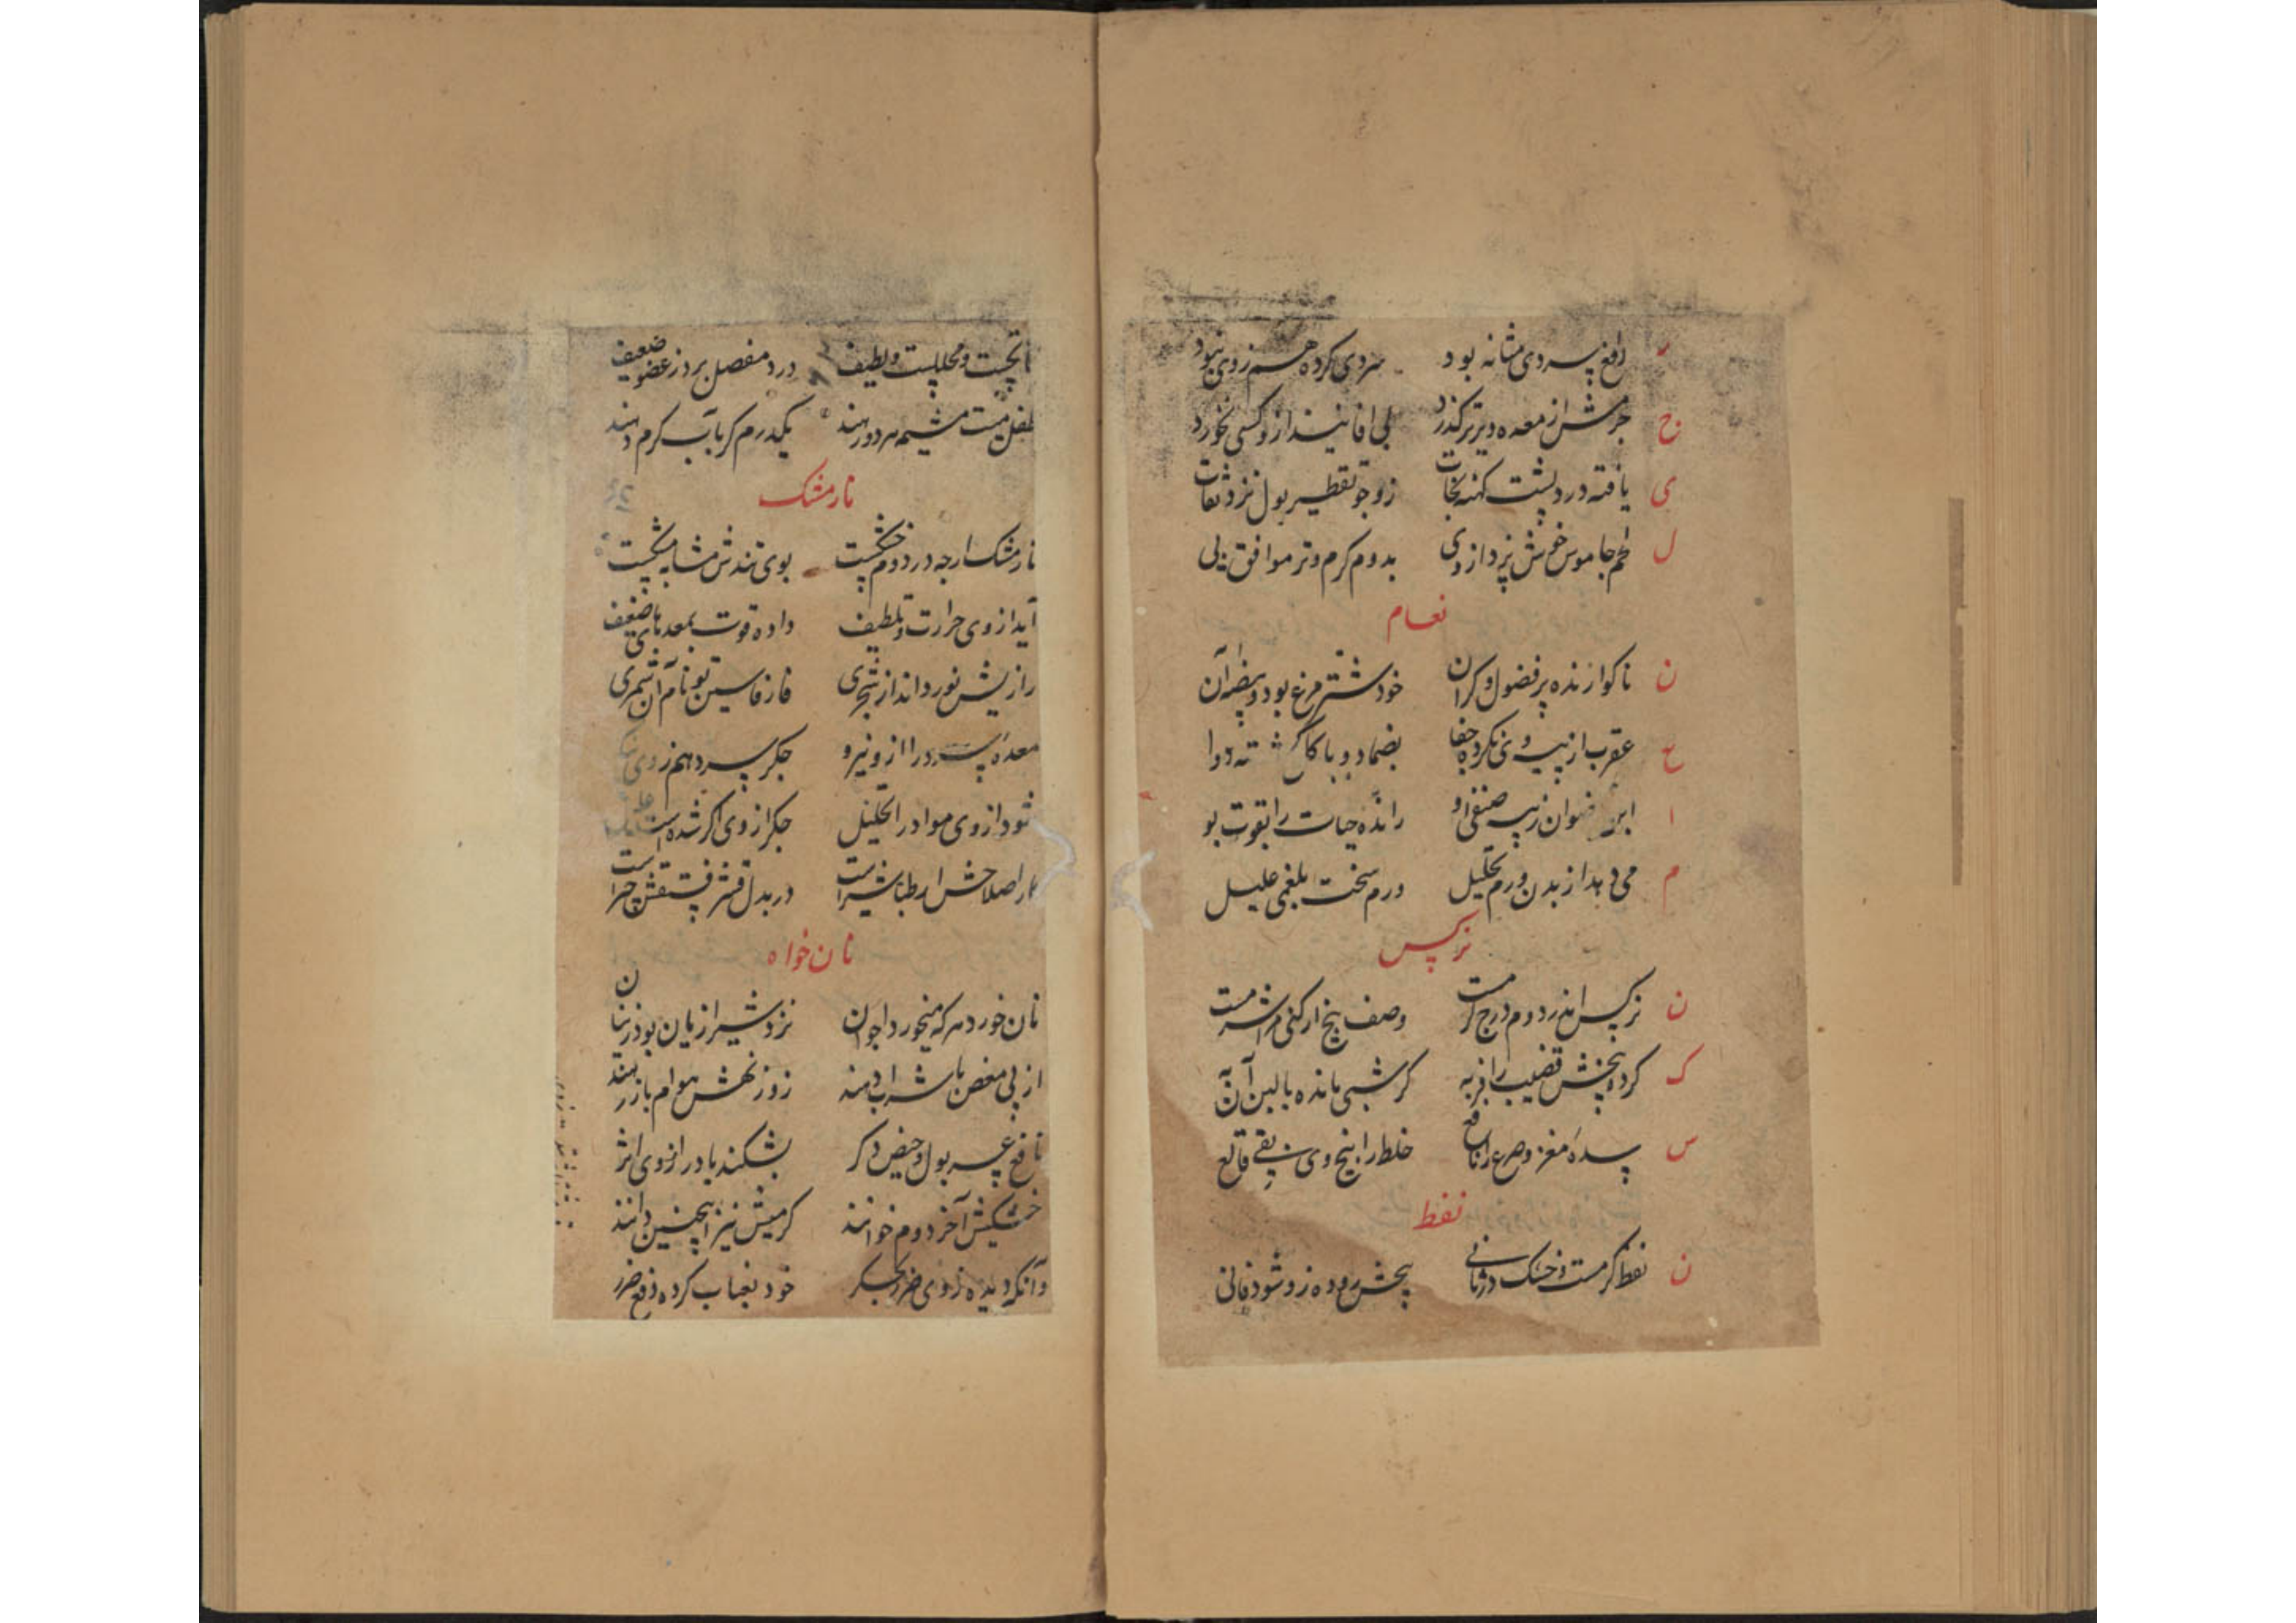 دافع سردی مثانه بود سردی کرده هم ز وی نبود
ح جرمش از معده دیرتر گذرد بی افانیذ ازو کسی نخورد
ی یافته درد پشت کهنه نجات زو چو تقطیر بول نزد ثقات
ل لحم جاموس خوش نپردازوی بدوم گرم و تر موافق پی
نعام
ن ناگوارنده پر فضول و گران خود شترمرغ بود و بیضه آن
ح عقرب از پیه وی نکرده جفا بضماد و باکل گشته دوا
ا ابن رضوان ز پیه صنفی او رانده حیات را بقوت بو
م می دهد از بدن ورم تحلیل ورم سخت بلغمی علیل
نرگس
ن نرگس اندر دوم درج گرمست وصف بیخ ار کنی مرا شرمست
ک کرده بیخش قضیب را فربه گر شبی مانده با لبن آن به
س سده مغز و صرع را نافع خلط را بیخ وی بقی قالع
نفط
ن نفط گرمست و خشک در ثانی بیخش روده زو شود فانی
محللیست و لطیف درد مفصل برد ز عضو ضعیف
مشیمه هر دو رهند یکدرم گر بآب گرم دهند
نارمشک
نارمشک ارچه در دوم خشکیست بوی تندش مشابه مشکیست
آید از وی حرارت و تلطیف داده قوت بمعدهای ضعیف
رازیش نورد اند از شجری فازفاسین تو نام آن شمری
معده سرد را ازو نیرو جگر سرد هم ز وی
شود از وی مواد را تحلیل جگر از وی اگر شده است علیل
اصلاحش ار طباشیر است در بدل قشر فستقش چیراست
نان خواه
نان خورد هر که میخورد اجوان نزد شیرازیان بود زنیان
از پی مغص با شراب دهند زو ز نهش هوام باز رهند
نافع عسر بول و حیض دگر بشکند باد را ز وی اثر
خشکیش آخر دوم خوانند گرمیش نیز اینچنین دانند
وانکه دیده ز وی ضرر بجگر خود بعناب کرده دفع ضرر